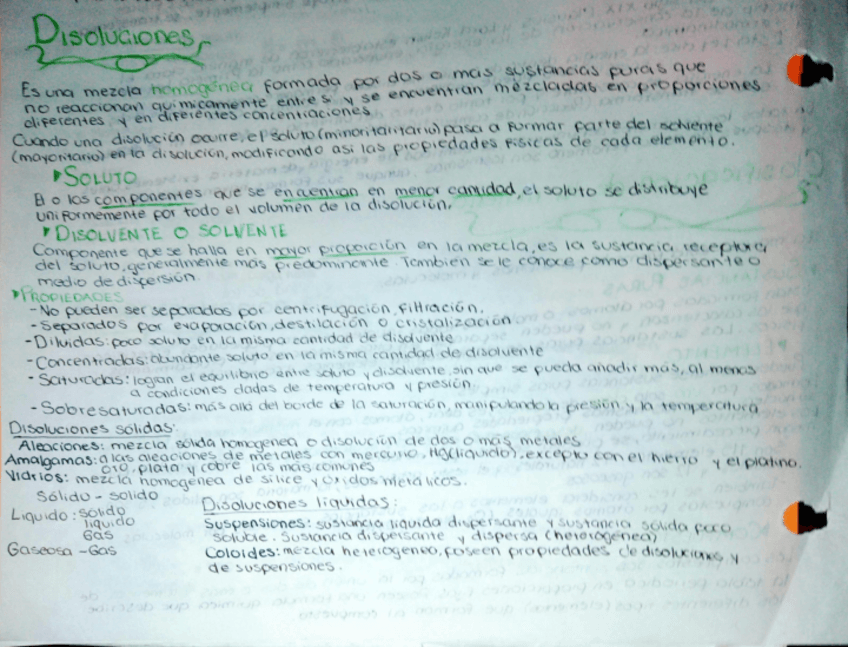 Disoluciones
Es una mezcla homogénea formada por dos o mas sustancias puras que
no reaccionan quimicamente entres y se encuentran mezcladas en proporciones
diferentes y en diferentes concentraciones
Cuando una disolución ocurre, el soluto (minoritaritario) pasa a formar parte del solvente
(mayoritario) en la disolución, modificando asi las propiedades fisicas de cada elemento.
SOLUTO
El o los componentes que se encuentran en menor cantidad, el soluto se distribuye
uniformemente por todo el volumen de la disolución.
DISOLVENTE O SOLVENTE
Componente que se halla en mayor proporción en la mezcla, es la sustancia receptora
del soluto, generalmente más predominante. Tambien se le conoce como dispersante o
medio de dispersión.
PROPIEDADES
- No pueden ser separados por centrifugación, filtración.
- Separados por evaporación, destilación o cristalización.
- Diluidas: poco soluto en la misma cantidad de disolvente
- Concentradas: abundante soluto en la misma cantidad de disolvente
- Saturadas: logran el equilibrio entre soluto y disolvente, sin que se pueda añadir más, al menos
a condiciones dadas de temperatura y presión
- Sobresaturadas: más allá del borde de la saturación, manipulando la presión y la temperatura
Disoluciones sólidas:
Aleaciones: mezcla sólida homogenea o disolución de dos o más metales
Amalgamas: a las aleaciones de metales con mercurio, Hg(liquido), excepto con el hierro y el platino.
oro, plata y cobre las más comunes
Vidrios: mezcla homogenea de silice y óxidos metálicos.
Sólido - solido
Liquido: sólido
liquido
Gas
Gaseosa - Gas
Disoluciones liquidas:
Suspensiones: sustancia liquida dispersante y sustancia sólida poco
soluble. Sustancia dispersante y dispersa (heterogénea)
Coloides: mezcla heterogenea, poseen propiedades de disoluciones y
de suspensiones.